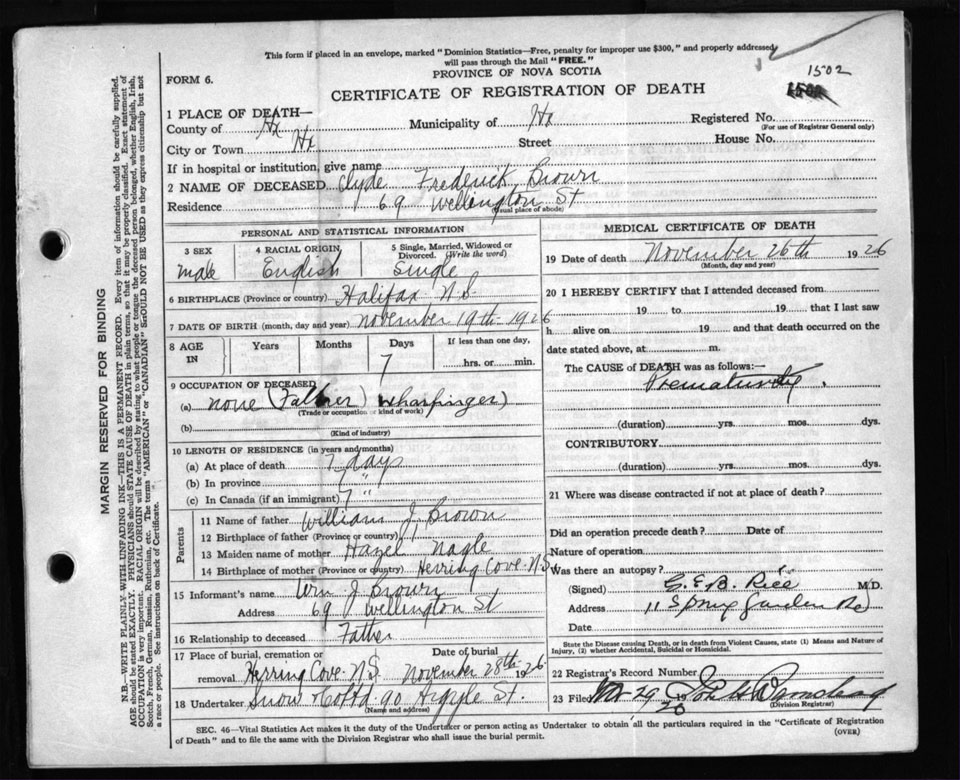 This form if placed in an envelope, marked "Dominion Statistics—Free, penalty for improper use $300," and properly addressed
will pass through the Mail "FREE."
PROVINCE OF NOVA SCOTIA
FORM 6.
1502
CERTIFICATE OF REGISTRATION OF DEATH
1 PLACE OF DEATH—
County of Hx Municipality of Hx Registered No.
(For use of Registrar General only)
City or Town Hx Street House No.
If in hospital or institution, give name
2 NAME OF DECEASED Clyde Frederick Brown
Residence 69 Wellington St
(Usual place of abode)
PERSONAL AND STATISTICAL INFORMATION
3 SEX 4 RACIAL ORIGIN 5 Single, Married, Widowed or Divorced. (Write the word)
male English Single
6 BIRTHPLACE (Province or country) Halifax N.S.
7 DATE OF BIRTH (month, day and year) November 19th 1926
8 AGE IN Years Months Days If less than one day,
7 hrs. or min.
9 OCCUPATION OF DECEASED
(a) none (Father) Wharfinger)
(Trade or occupation or kind of work)
(b)
(Kind of industry)
10 LENGTH OF RESIDENCE (in years and months)
(a) At place of death 7 days
(b) In province 7 "
(c) In Canada (if an immigrant) 7
Parents
11 Name of father William J Brown
12 Birthplace of father (Province or country)
13 Maiden name of mother Hazel Nagle
14 Birthplace of mother (Province or country) Herring Cove N.S.
15 Informant's name Wm J Brown
Address 69 Wellington St
16 Relationship to deceased Father
17 Place of burial, cremation or removal Date of burial
Herring Cove N.S. November 28th 1926
18 Undertaker Snow & Co Ltd 90 Argyle St.
(Name and address)
MEDICAL CERTIFICATE OF DEATH
19 Date of death November 26th 1926
(Month, day and year)
20 I HEREBY CERTIFY that I attended deceased from
19 to 19 that I last saw
h alive on 19 and that death occurred on the
date stated above, at m.
The CAUSE of DEATH was as follows:—
Prematurity.
(duration) yrs. mos. dys.
CONTRIBUTORY
(duration) yrs. mos. dys.
21 Where was disease contracted if not at place of death?
Did an operation precede death? Date of
Nature of operation
Was there an autopsy?
(Signed) G. E. B. Rice M.D.
Address 11 Spring Garden Rd
Date
State the Disease causing Death, or in death from Violent Causes, state (1) Means and Nature of
Injury, (2) whether Accidental, Suicidal or Homicidal.
22 Registrar's Record Number
23 Filed Nov 29 19 26
(Division Registrar)
SEC. 46—Vital Statistics Act makes it the duty of the Undertaker or person acting as Undertaker to obtain all the particulars required in the "Certificate of Registration
of Death" and to file the same with the Division Registrar who shall issue the burial permit.
(OVER)
MARGIN RESERVED FOR BINDING
N.B.—WRITE PLAINLY WITH UNFADING INK—THIS IS A PERMANENT RECORD. Every item of information should be carefully supplied.
AGE should be stated EXACTLY. PHYSICIANS should STATE CAUSE OF DEATH in plain terms, so that it may be properly classified. Exact statement of
OCCUPATION is very important. RACIAL ORIGIN will be described by stating to what people or tongue the deceased person belonged, whether English, Irish,
Scotch, French, German, Russian, Ruthenian, etc. The terms "AMERICAN" or "CANADIAN" SHOULD NOT BE USED as they express citizenship but not
a race or people. See instructions on back of Certificate.